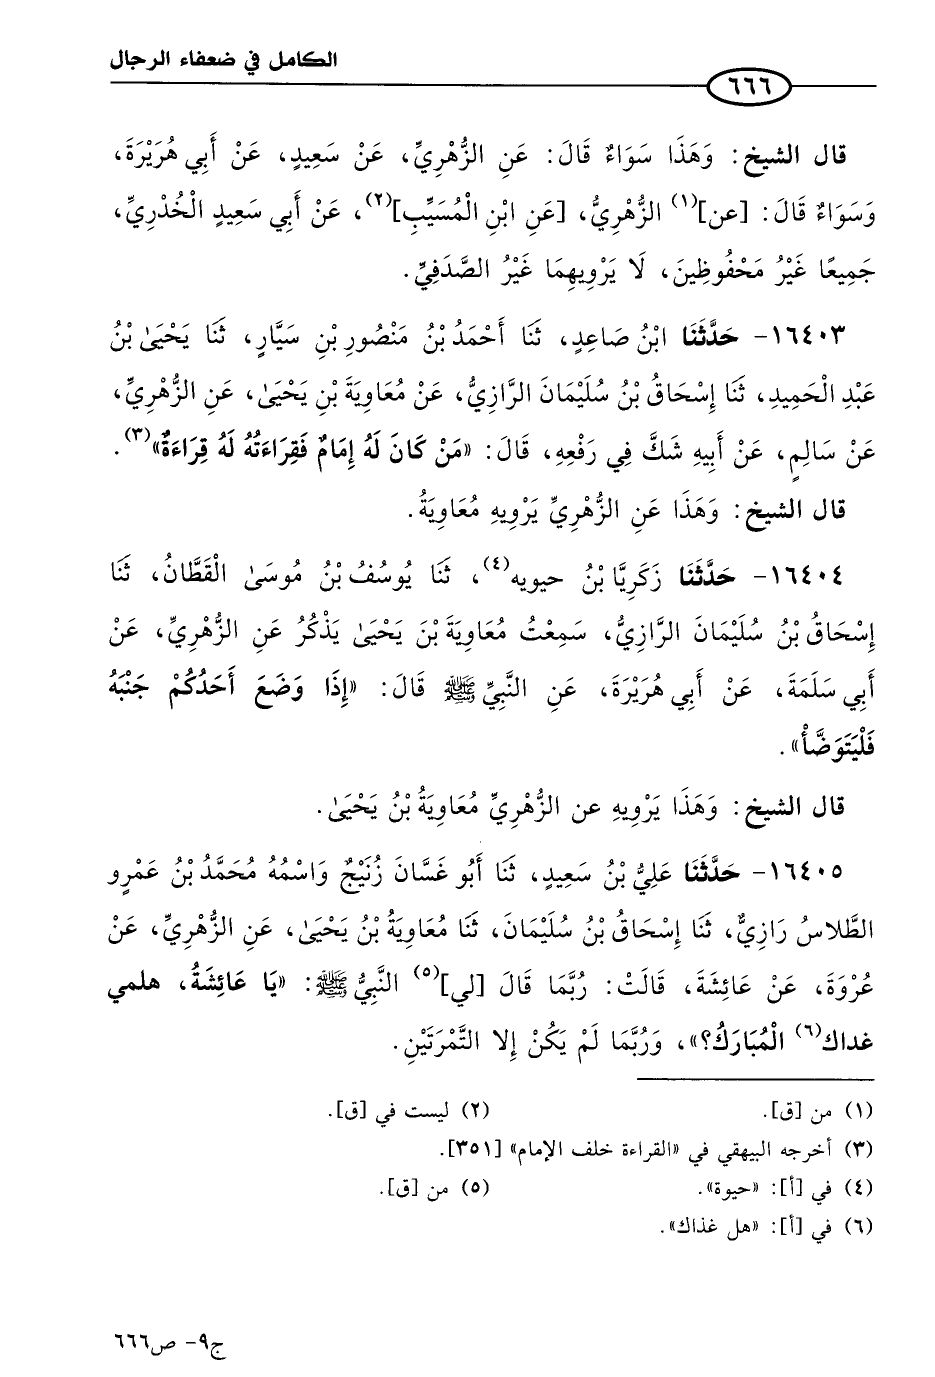 الكامل في ضعفاء الرجال
٦٦٦
قال الشيخ: وَهَذَا سَوَاءٌ قَالَ: عَنِ الزُّهْرِيِّ، عَنْ سَعِيدٍ، عَنْ أَبِي هُرَيْرَةَ،
وَسَوَاءٌ قَالَ: [عن](١) الزُّهْرِيُّ، [عَنِ ابْنِ الْمُسَيِّبِ](٢)، عَنْ أَبِي سَعِيدٍ الْخُدْرِيِّ،
جَمِيعًا غَيْرُ مَحْفُوظِينَ، لَا يَرْوِيهِمَا غَيْرُ الصَّدَفِيِّ.
١٦٤٠٣- حَدَّثَنَا ابْنُ صَاعِدٍ، ثَنَا أَحْمَدُ بْنُ مَنْصُورِ بْنِ سَيَّارٍ، ثَنَا يَحْيَىٰ بْنُ
عَبْدِ الْحَمِيدِ، ثَنَا إِسْحَاقُ بْنُ سُلَيْمَانَ الرَّازِيُّ، عَنْ مُعَاوِيَةَ بْنِ يَحْيَىٰ، عَنِ الزُّهْرِيِّ،
عَنْ سَالِمٍ، عَنْ أَبِيهِ شَكَّ فِي رَفْعِهِ، قَالَ: «مَنْ كَانَ لَهُ إِمَامٌ فَقِرَاءَتُهُ لَهُ قِرَاءَةٌ»(٣).
قال الشيخ: وَهَذَا عَنِ الزُّهْرِيِّ يَرْوِيهِ مُعَاوِيَةُ.
١٦٤٠٤- حَدَّثَنَا زَكَرِيَّا بْنُ حيويه(٤)، ثَنَا يُوسُفُ بْنُ مُوسَىٰ الْقَطَّانُ، ثَنَا
إِسْحَاقُ بْنُ سُلَيْمَانَ الرَّازِيُّ، سَمِعْتُ مُعَاوِيَةَ بْنَ يَحْيَىٰ يَذْكُرُ عَنِ الزُّهْرِيِّ، عَنْ
أَبِي سَلَمَةَ، عَنْ أَبِي هُرَيْرَةَ، عَنِ النَّبِيِّ ﷺ قَالَ: «إِذَا وَضَعَ أَحَدُكُمْ جَنْبَهُ
فَلْيَتَوَضَّأْ».
قال الشيخ: وَهَذَا يَرْوِيهِ عن الزُّهْرِيِّ مُعَاوِيَةُ بْنُ يَحْيَىٰ.
١٦٤٠٥- حَدَّثَنَا عَلِيُّ بْنُ سَعِيدٍ، ثَنَا أَبُو غَسَّانَ زُنَيْجٌ وَاسْمُهُ مُحَمَّدُ بْنُ عَمْرٍو
الطَّلاسُ رَازِيٌّ، ثَنَا إِسْحَاقُ بْنُ سُلَيْمَانَ، ثَنَا مُعَاوِيَةُ بْنُ يَحْيَىٰ، عَنِ الزُّهْرِيِّ، عَنْ
عُرْوَةَ، عَنْ عَائِشَةَ، قَالَتْ: رُبَّمَا قَالَ [لي](٥) النَّبِيُّ ﷺ: «يَا عَائِشَةُ، هلمي
غداك(٦) الْمُبَارَكُ؟»، وَرُبَّمَا لَمْ يَكُنْ إِلا التَّمْرَتَيْنِ.
(١) من [ق]. (٢) ليست في [ق].
(٣) أخرجه البيهقي في «القراءة خلف الإمام» [٣٥١].
(٤) في [أ]: «حيوة». (٥) من [ق].
(٦) في [أ]: «هل غذاك».
ج٩- ص٦٦٦